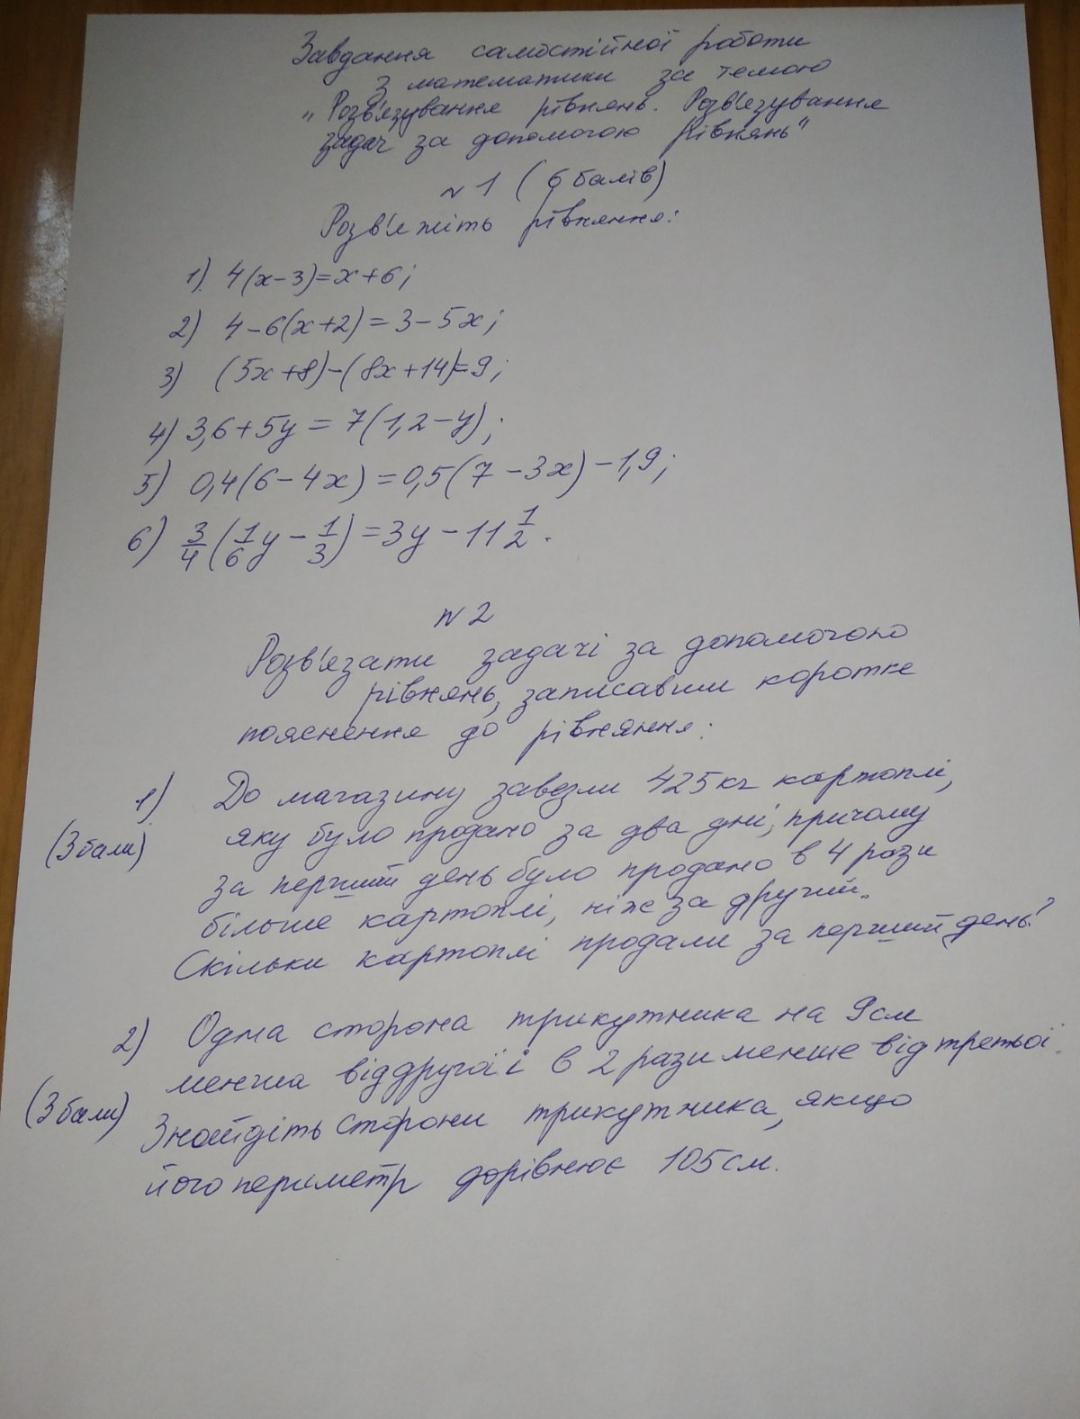 Завдання самостійної роботи
з математики за темою
„Розв'язування рівнянь. Розв'язування
задач за допомогою рівнянь"
№1 (6 балів)
Розв'яжіть рівняння:
1) 4(x-3)=x+6;
2) 4-6(x+2)=3-5x;
3) (5x+8)-(8x+14)=9;
4) 3,6+5y=7(1,2-y);
5) 0,4(6-4x)=0,5(7-3x)-1,9;
6) 3/4(1/6y-1/3)=3y-11 1/2.
№2
Розв'язати задачі за допомогою
рівнянь, записавши коротке
пояснення до рівняння:
1) До магазину завезли 425кг картоплі,
(3бали) яку було продано за два дні, причому
за перший день було продано в 4 рази
більше картоплі, ніж за другий.
Скільки картоплі продали за перший день?
2) Одна сторона трикутника на 9см
менша від другої і в 2 рази менше від третьої.
(3бали) Знайдіть сторони трикутника, якщо
його периметр дорівнює 105см.